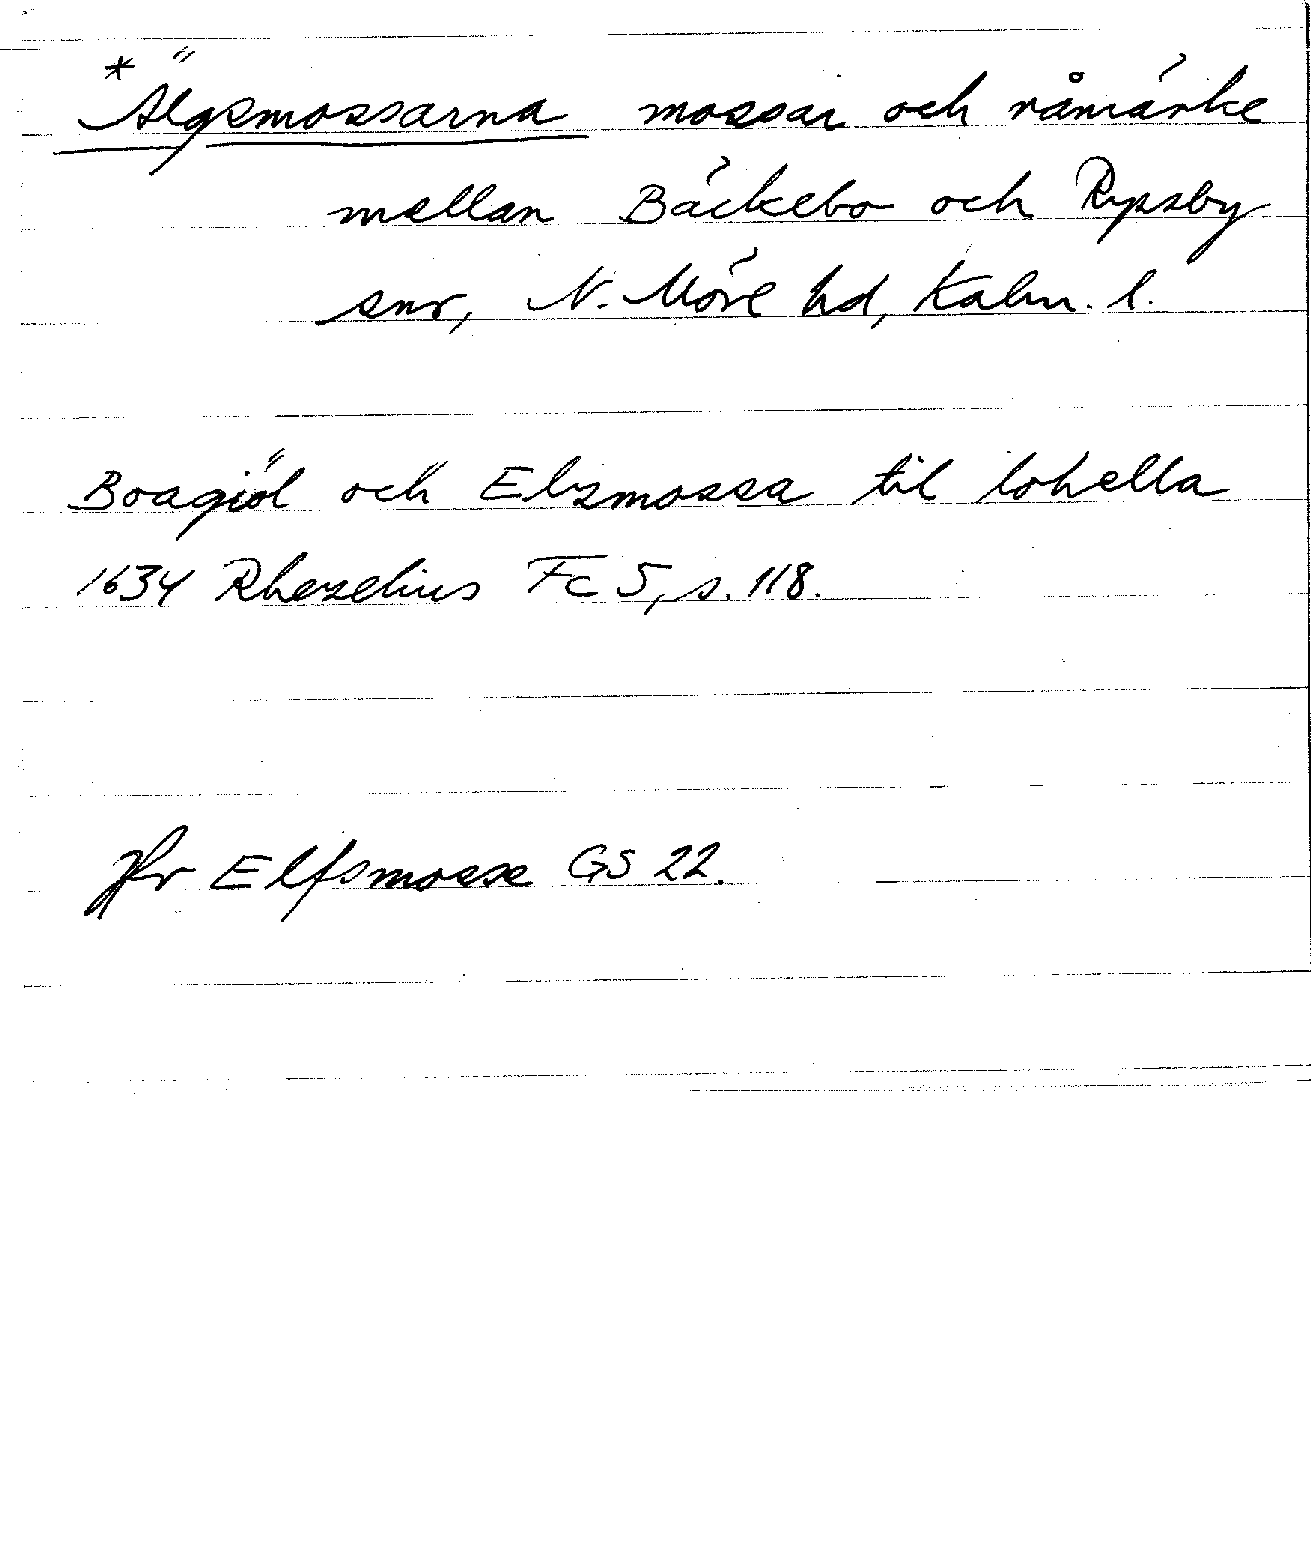 *Älgsmossarna mossar och råmärke
mellan Bäckebo och Ryssby
snr, N. Möre hd, Kalm. l.
Boagiöl och Elzmossa til lohella
1634 Rhezelius Fc 5, s. 118.
Jfr Elfsmosse GS 22.